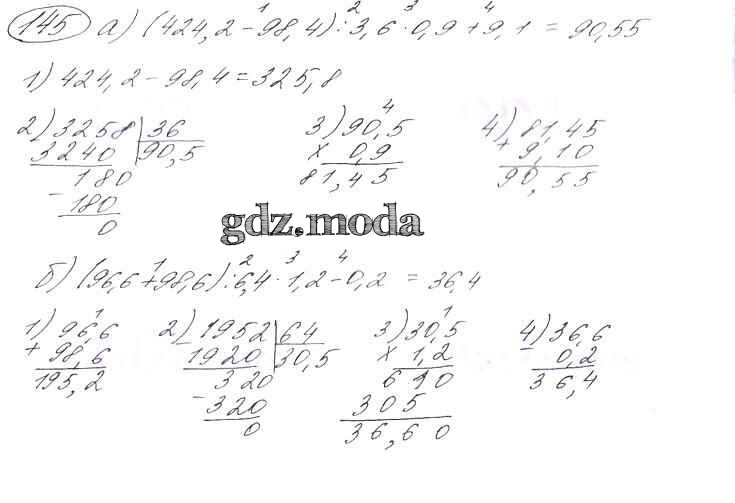 145 а) (424,2 - 98,4) : 3,6 · 0,9 + 9,1 = 90,55
1) 424,2 - 98,4 = 325,8
2) 3258 | 36
3240 | 90,5
180
- 180
0
3) 90,5
× 0,9
81,45
4) 81,45
+ 9,10
90,55
gdz.moda
б) (96,6 + 98,6) : 6,4 · 1,2 - 0,2 = 36,4
1) 96,6
+ 98,6
195,2
2) 1952 | 64
1920 | 30,5
320
- 320
0
3) 30,5
× 1,2
610
305
36,60
4) 36,6
0,2
36,4